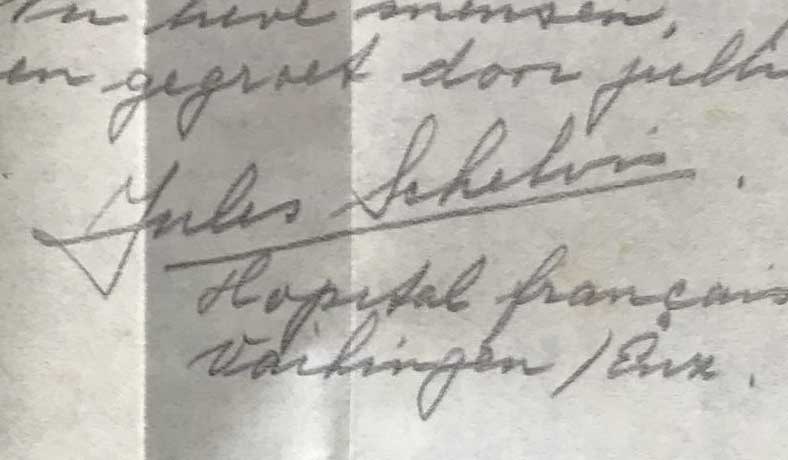 Nu lieve mensen,
en gegroet door julli
Jules Schelvis.
Hopital français
Vaihingen / Enz.